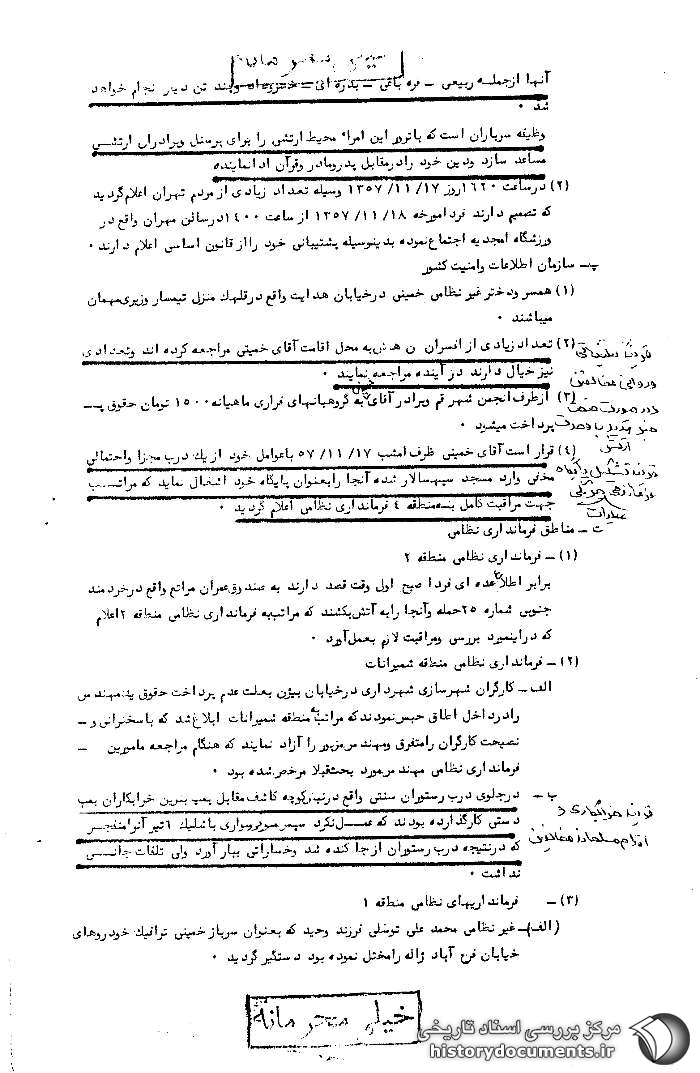 خیلی محرمانه
آنها ازجمله ربیعی - قره باغی - بدره ای - خسروداد وچند تن دیگر انجام خواهد
شد ۰
وظیفه سربازان است که باترور این امراء محیط ارتش را برای پرسنل وبرادران ارتشی
مساعد سازد ودین خود رادرمقابل پدرومادر وقرآن ادانمایند
(۲) درساعت ۱۶۲۰روز ۱۳۵۷/۱۱/۱۷ وسیله تعداد زیادی ازمردم تهران اعلام گردید
که تصمیم دارند فردامورخه ۱۳۵۷/۱۱/۱۸ از ساعت ۱۴۰۰درسالن مهران واقع در
ورزشگاه امجدیه اجتماع نموده بدینوسیله پشتیبانی خود رااز قانون اساسی اعلام دارند ۰
پ- سازمان اطلاعات وامنیت کشور
(۱) همسر ودختر غیر نظامی خمینی درخیابان هدایت واقع درقلهک منزل تیمسار وزیری مهمان
میباشند ۰
(۲) تعداد زیادی از افسران ن هـ ش به محل اقامت آقای خمینی مراجعه کرده اند وتعدادی
نیز خیال دارند در آینده مراجعه نمایند ۰
(۳) ازطرف انجمن شهر قم وبرادر آقای به گروهبانهای فراری ماهیانه ۱۵۰۰ تومان حقوق پـ
پرداخت میشود ۰
(۴) قرار است آقای خمینی ظرف امشب ۵۷/۱۱/۱۷ باعوامل خود از یک درب مجزا واحتمالی
مخفی وارد مسجد سپهسالار شده آنجا رابعنوان پایگاه خود اشغال نماید که مراتب
جهت مراقبت کامل بـه منطقه ۴ فرمانداری نظامی اعلام گردید ۰
ت - مناطق فرمانداری نظامی
(۱) - فرمانداری نظامی منطقه ۲
برابر اطلاع عده ای فردا صبح اول وقت قصد دارند به صندوق عمران مراتع واقع درخردمند
جنوبی شماره ۲۵حمله وآنجا رابه آتش بکشند که مراتب به فرمانداری نظامی منطقه ۲اعلام
که دراینمورد بررسی ومراقبت لازم بعمل آورد ۰
(۲) - فرمانداری نظامی منطقه شمیرانات
الف - کارگران شهرسازی شهرداری درخیابان بیژن بعلت عدم پرداخت حقوق یه مهندس
رادرداخل اطاق حبس نمودند که مراتب به منطقه شمیرانات ابلاغ شد که باسخنرانی و -
نصیحت کارگران رامتفرق ومهند مزبور را آزاد نمایند که هنگام مراجعه مامورین -
فرمانداری نظامی مهند مزمورد بحث قبلا مرخص شده بود ۰
ب - درجلوی درب رستوران سنتی واقع درنبش کوچه کاشف مقابل پمپ بنزین خرابکاران بمب
دستی کارگذارده بودند که عمـل نکرد سپس موتورسواری باشلیک ۶تیر آنرامنفجر
که درنتیجه درب رستوران ازجا کنده شد وخساراتی ببار آورد ولی تلفات جانـی
نداشت ۰
(۳) - فرمانداریهای نظامی منطقه ۱
(الف) - غیر نظامی محمد علی توسلی فرزند وحید که بعنوان سرباز خمینی ترافیک خودروهای
خیابان فرح آباد ژاله رامختل نموده بود دستگیر گردید ۰
خیلی محرمانه
مرکز بررسی اسناد تاریخی
historydocuments.ir